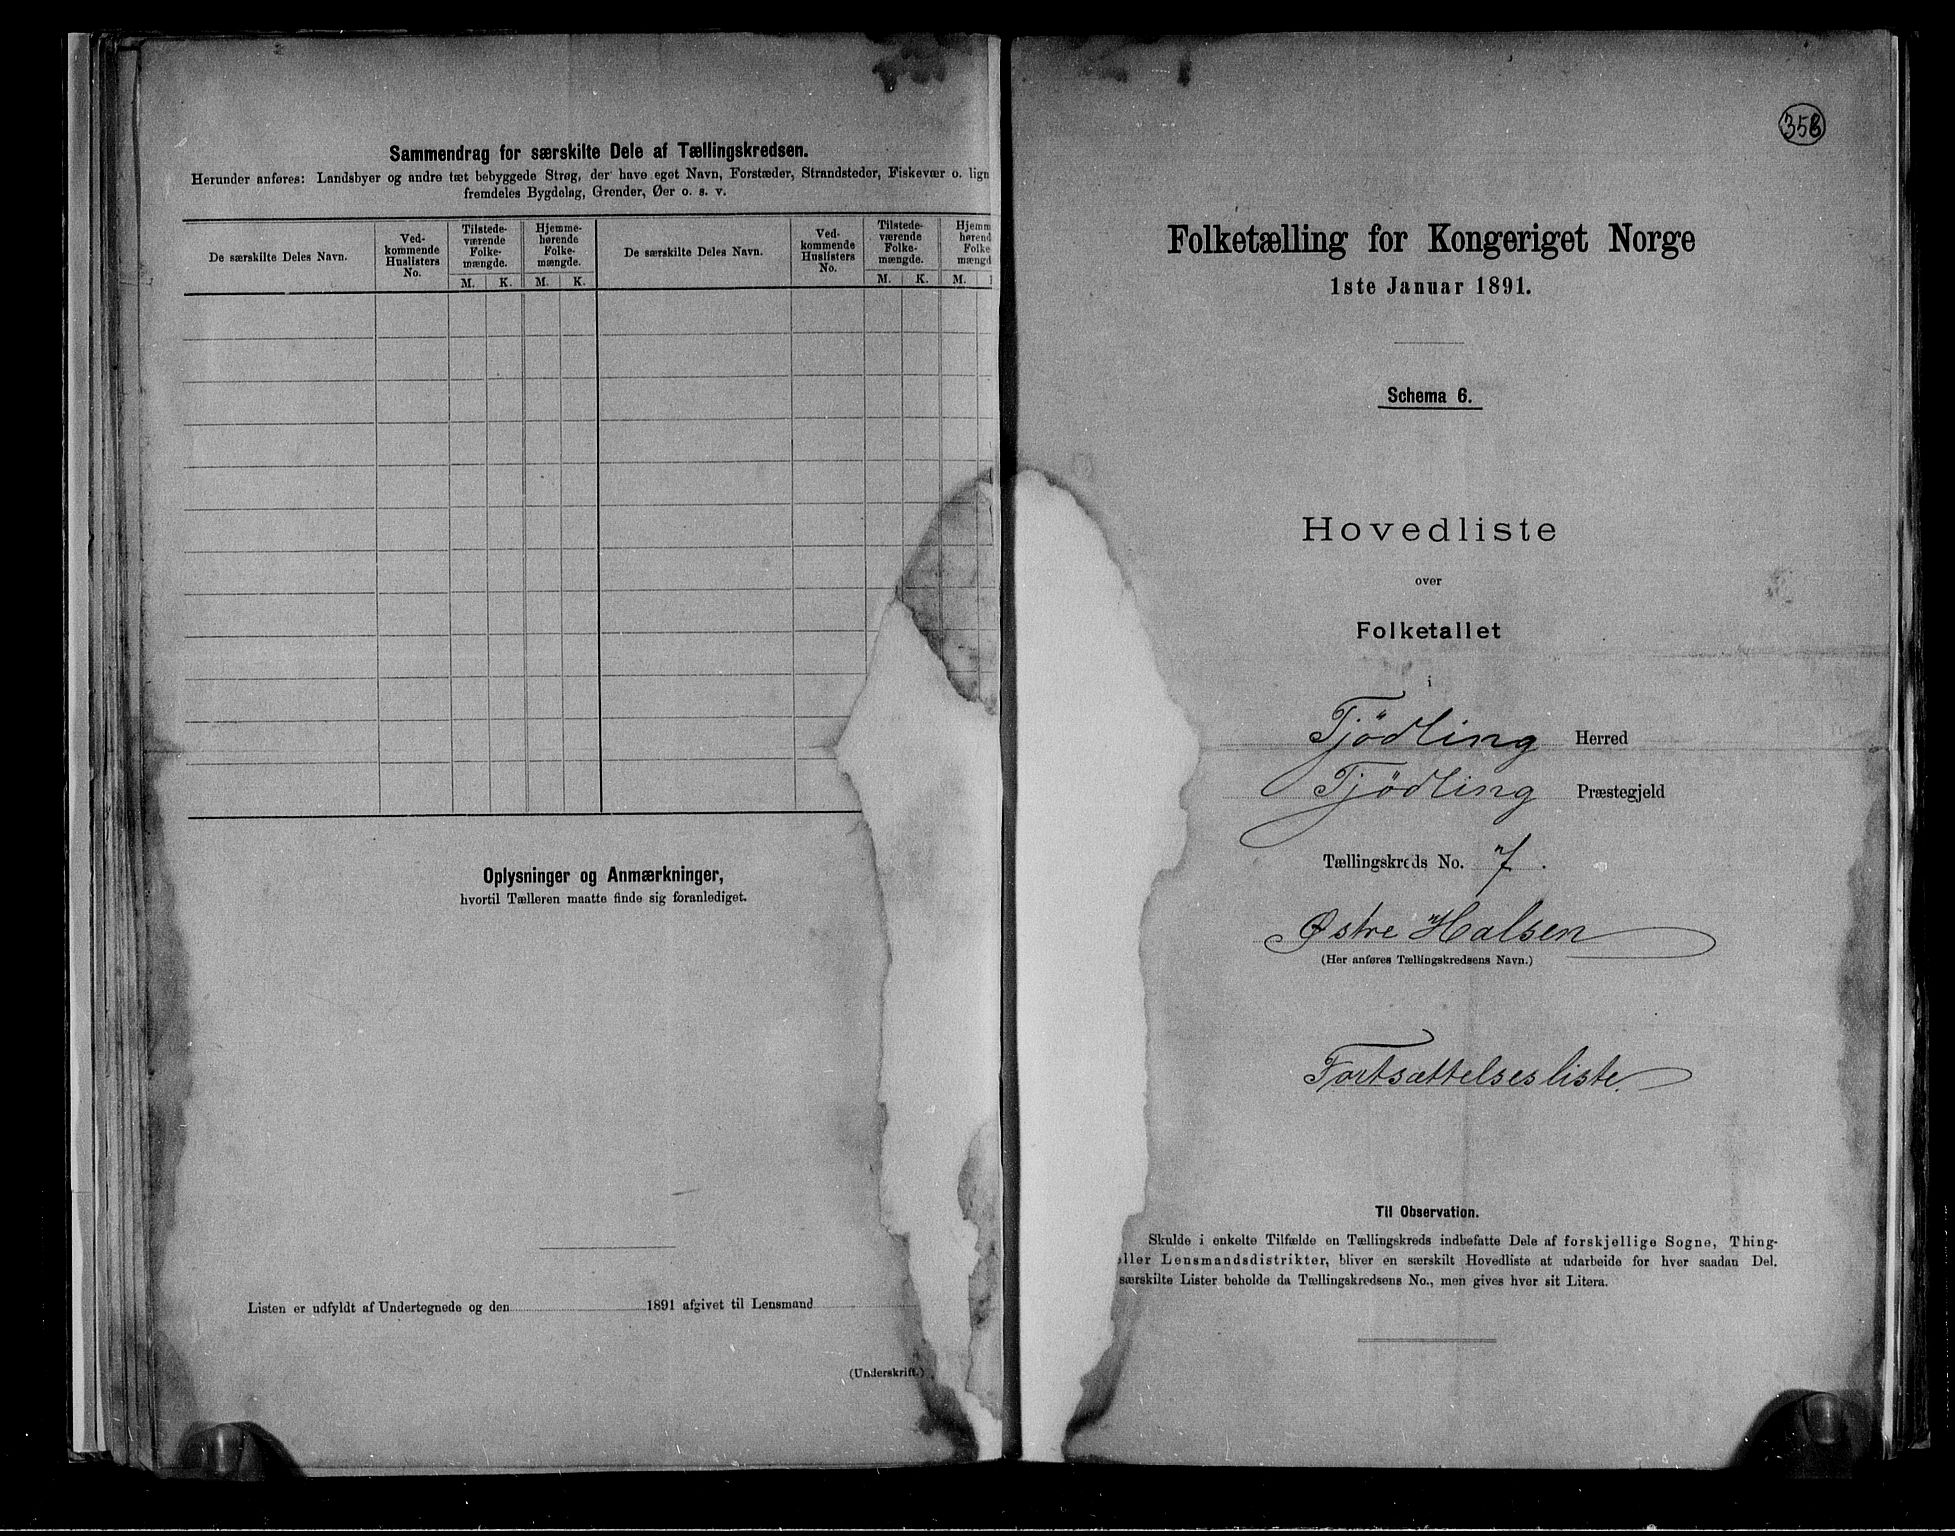 Sammendrag for særskilte Dele af Tællingskredsen.
Herunder anføres: Landsbyer og andre tæt bebyggede Strøg, der have eget Navn, Forstæder, Strandsteder, Fiskevær o. lign
fremdeles Bygdelag, Grender, Øer o. s. v.
De særskilte Deles Navn.
Ved-
kommende
Huslisters
No.
Tilstede-
værende
Folke-
mængde.
Hjemme-
hørende
Folke-
mængde.
M. K. M. K.
De særskilte Deles Navn.
Ved-
kommende
Huslisters
No.
Tilstede-
værende
Folke-
mængde.
Hjemm
hørend
Folke
mængd
M. K. M.
Oplysninger og Anmærkninger,
hvortil Tælleren maatte finde sig foranlediget.
Listen er udfyldt af Undertegnede og den 1891 afgivet til Lensmand
(Underskrift.)
Folketælling for Kongeriget Norge
1ste Januar 1891.
Schema 6.
Hovedliste
over
Folketallet
i
Tjödling Herred
Tjödling Præstegjeld
Tællingskreds No. 7.
Østre Halsen
(Her anføres Tællingskredsens Navn.)
Fortsættelsesliste.
Til Observation.
Skulde i enkelte Tilfælde en Tællingskreds indbefatte Dele af forskjellige Sogne, Thing-
eller Lensmandsdistrikter, bliver en særskilt Hovedliste at udarbeide for hver saadan Del.
særskilte Lister beholde da Tællingskredsens No., men gives hver sit Litera.